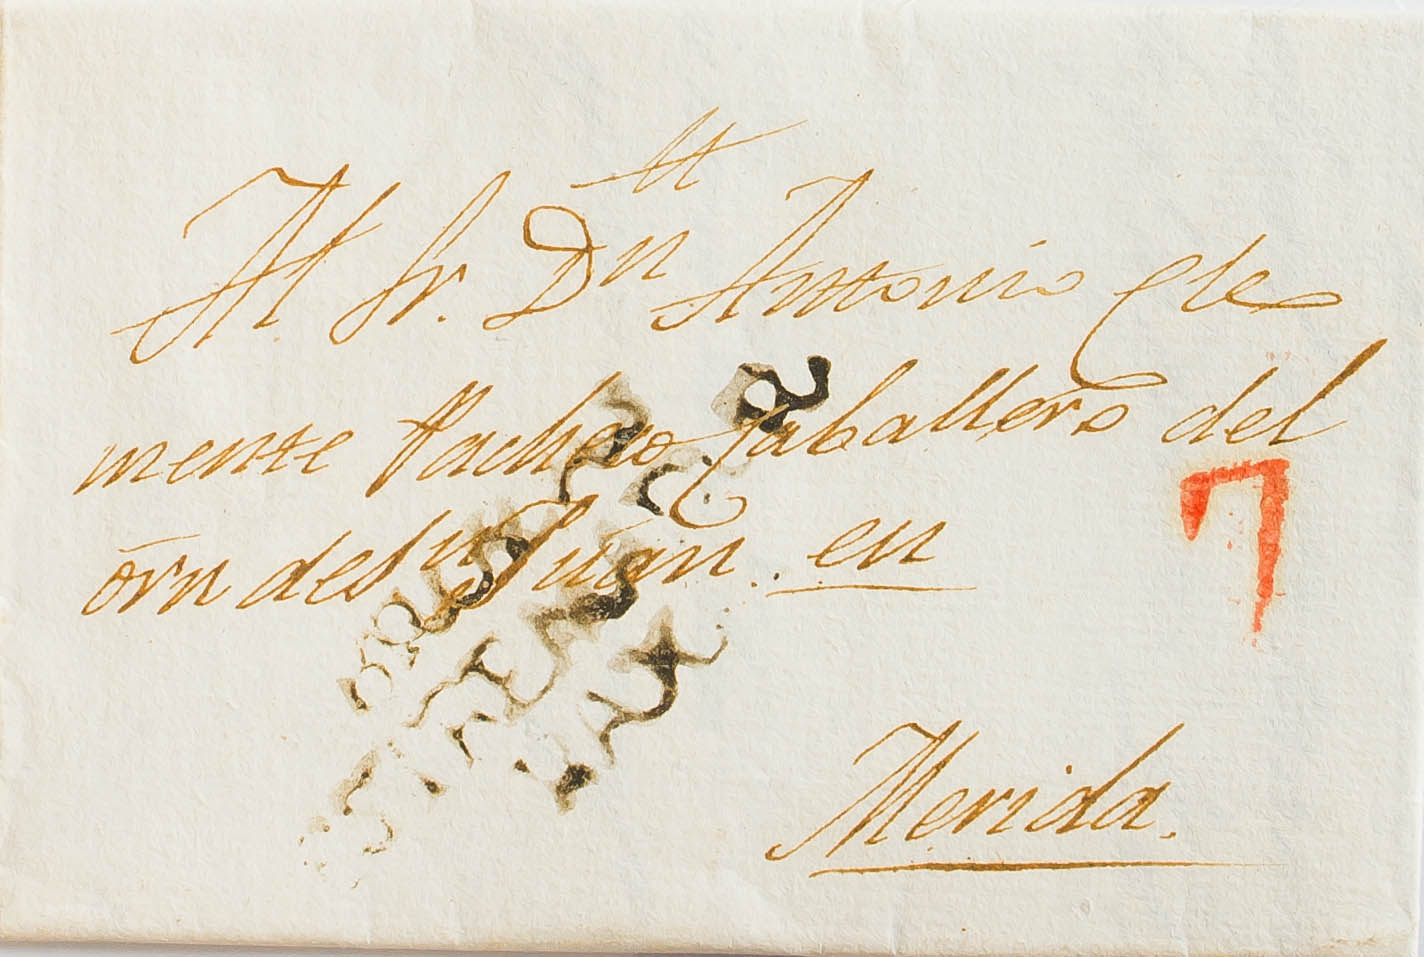 Al Sr. Dn Antonio Cle
mente Pacheco Caballero del
orn de Sn Juan. en
Merida.
7